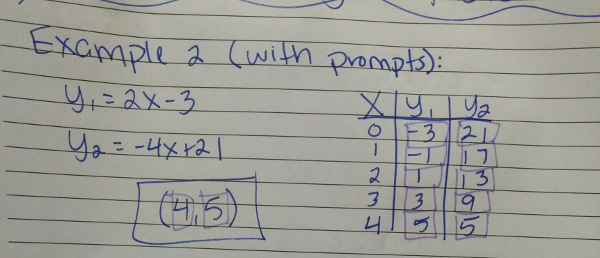 Example 2 (with prompts):
y₁ = 2x-3
y₂ = -4x+21
(4, 5)
x y₁ y₂
0 -3 21
1 -1 17
2 1 13
3 3 9
4 5 5